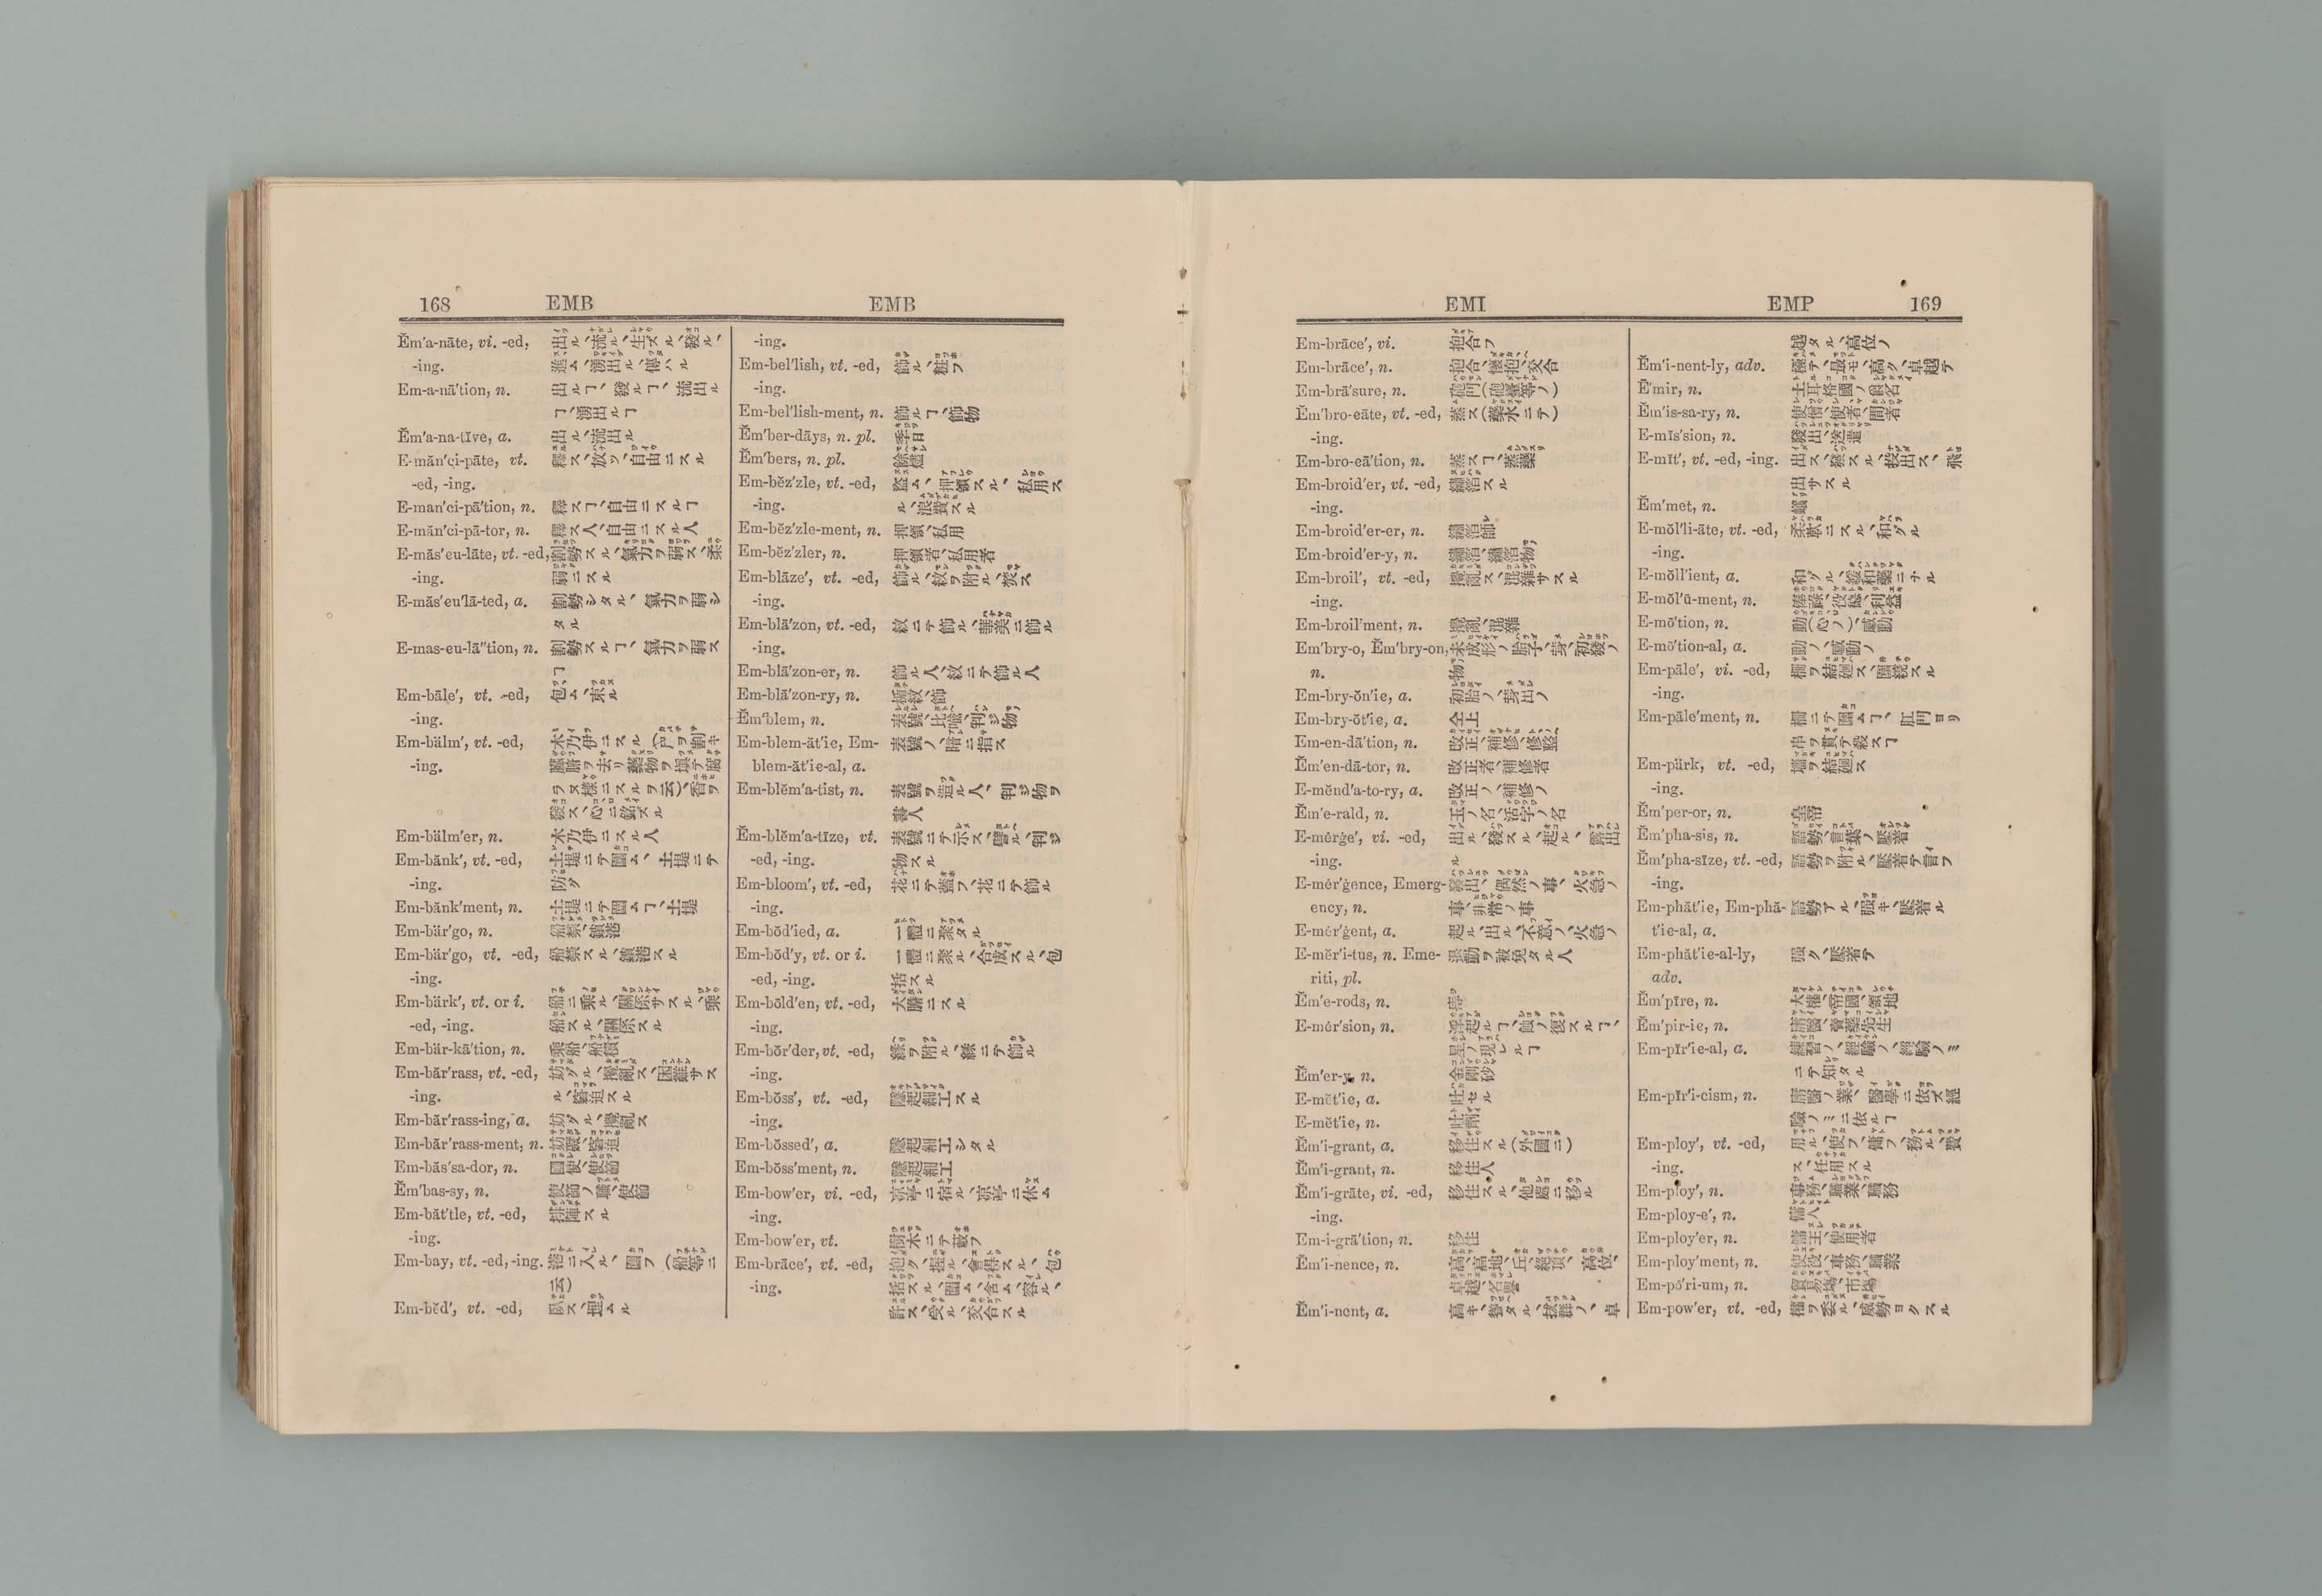 168 EMB EMB
Ĕm'a-nāte, vi. -ed, 出ル、流ル、生ズル、發ル、
-ing. 進ム、湧出ル、傳ハル
Em-a-nā'tion, n. 出ルヿ、發ルヿ、流出ル
ヿ、湧出ルヿ
Ĕm'a-na-tĭve, a. 出ル、流出ル
E-măn'ci-pāte, vt. 釋ス、放ツ、自由ニスル
-ed, -ing.
E-man'ci-pā'tion, n. 釋スヿ、自由ニスルヿ
E-măn'ci-pā-tor, n. 釋ス人、自由ニスル人
E-măs'eu-lāte, vt. -ed, 割勢スル、氣力ヲ弱ス、柔
-ing. 弱ニスル
E-măs'eu'lā-ted, a. 割勢シタル、氣力ヲ弱シ
タル
E-mas-eu-lā"tion, n. 割勢スルヿ、氣力ヲ弱ス
ヿ
Em-bāle', vt. -ed, 包ム、束ル
-ing.
Em-bälm', vt. -ed, 木乃伊ニスル(尸ヲ割キ
-ing. 臟腑ヲ去リ藥物ヲ塡テ腐
ラヌ樣ニスルヲ云)、香ヲ
發ス、心ニ銘ズル
Em-bälm'er, n. 木乃伊ニスル人
Em-bănk', vt. -ed, 土堤ニテ圍ム、土堤ニテ
-ing. 防グ
Em-bănk'ment, n. 土堤ニテ圍ムヿ、土堤
Em-bär'go, n. 船禁、鎖港
Em-bär'go, vt. -ed, 船禁スル、鎖港スル
-ing.
Em-bärk', vt. or i. 船ニ乘ル、關係サスル、乘
-ed, -ing. 船スル、關係スル
Em-bär-kā'tion, n. 乘船、船積
Em-băr'rass, vt. -ed, 妨グル、攪亂ス、困難サス
-ing. ル、窘迫スル
Em-băr'rass-ing, a. 妨グル、攪亂ス
Em-băr'rass-ment, n. 妨礙、窘迫
Em-băs'sa-dor, n. 國使、使節
Ĕm'bas-sy, n. 使節ノ職、使節
Em-băt'tle, vt. -ed, 排陣スル
-ing.
Em-bay, vt. -ed, -ing. 港ニ入ル、圍フ(船等ニ
云)
Em-bĕd', vt. -ed, 臥ス、埋ムル
-ing.
Em-bel'lish, vt. -ed, 飾ル、粧フ
-ing.
Em-bel'lish-ment, n. 飾ルヿ、飾物
Ĕm'ber-dāys, n. pl. 季日
Ĕm'bers, n. pl. 餘燼
Em-bĕz'zle, vt. -ed, 盜ム、押領スル、私用ス
-ing. ル、浪費スル
Em-bĕz'zle-ment, n. 押領、私用
Em-bĕz'zler, n. 押領者、私用者
Em-blāze', vt. -ed, 飾ル、紋ヲ附ル、焚ス
-ing.
Em-blā'zon, vt. -ed, 紋ニテ飾ル、華美ニ飾ル
-ing.
Em-blā'zon-er, n. 飾ル人、紋ニテ飾ル人
Em-blā'zon-ry, n. 紋、飾
Ĕm'blem, n. 表號、比喩、判ジ物
Em-blem-ăt'ie, Em- 表號ノ、暗ニ指ス
blem-ăt'ie-al, a.
Em-blĕm'a-tist, n. 表號ヲ造ル人、判ジ物ヲ
書人
Em-blĕm'a-tīze, vt. 表號ニテ示ス、譬ル、判ジ
-ed, -ing. 物スル
Em-bloom', vt. -ed, 花ニテ蓋フ、花ニテ飾ル
-ing.
Em-bŏd'ied, a. 一體ニ聚タル
Em-bŏd'y, vt. or i. 一體ニ聚ル、合成スル、包
-ed, -ing. 括スル
Em-bōld'en, vt. -ed, 大膽ニスル
-ing.
Em-bŏr'der, vt. -ed, 緣ヲ附ル、緣ニテ飾ル
-ing.
Em-bŏss', vt. -ed, 隱起細工スル
-ing.
Em-bŏssed', a. 隱起細工シタル
Em-bŏss'ment, n. 隱起細工
Em-bow'er, vi. -ed, 凉亭ニ宿ル、凉亭ニ休ム
-ing.
Em-bow'er, vt. 樹木ニテ蔽フ
Em-brāce', vt. -ed, 抱ク、握ル、會得スル、包
-ing. 括スル、圍ム、含ム、容ル、
許ス、受ル、交合スル
EMI EMP 169
Em-brāce', vi. 抱合フ
Em-brāce', n. 抱合、懷抱、交合
Em-brā'sure, n. 砲門(砲臺等ノ)
Ĕm'bro-eāte, vt. -ed, 蒸ス(藥水ニテ)
-ing.
Em-bro-eā'tion, n. 蒸スヿ、蒸藥
Em-broid'er, vt. -ed, 繡箔スル
-ing.
Em-broid'er-er, n. 繡箔師
Em-broid'er-y, n. 繡箔、繡箔物
Em-broil', vt. -ed, 攪亂ス、混雜サスル
-ing.
Em-broil'ment, n. 攪亂、混雜
Em'bry-o, Ĕm'bry-on, 未成形ノ胎子、芽、初發ノ
n. 物
Em-bry-ŏn'ie, a. 初胎ノ、芽出ノ
Em-bry-ŏt'ie, a. 仝上
Em-en-dā'tion, n. 改正、補修、修整
Ĕm'en-dā-tor, n. 改正者、補修者
E-mĕnd'a-to-ry, a. 改正ノ、補修ノ
Ĕm'e-rald, n. 玉ノ名、活字ノ名
E-mẽrġe', vi. -ed, 出ル、發スル、起ル、露出
-ing. ル
E-mẽr'ġence, Emerg- 發出、偶然ノ事、火急ノ
ency, n. 事、非常ノ事
E-mẽr'ġent, a. 起ル、出ル、不意ノ、火急ノ
E-mĕr'i-tus, n. Eme- 勤ヲ被免タル人
riti, pl.
Ĕm'e-rods, n. 痔
E-mẽr'sion, n. 浮起ルヿ、蝕ノ復スルヿ、
星ノ現レルヿ
Ĕm'er-y, n. 金剛砂
E-mĕt'ie, a. 吐セル
E-mĕt'ie, n. 吐劑
Ĕm'i-grant, a. 移住スル(外國ニ)
Ĕm'i-grant, n. 移住人
Ĕm'i-grāte, vi. -ed, 移住スル、他處ニ移ル
-ing.
Em-i-grā'tion, n. 移住
Ĕm'i-nence, n. 高、高地、丘、絕頂、高位、
卓越、名譽
Ĕm'i-nent, a. 高キ、聳タル、拔群ノ、卓
越タル、高位ノ
Ĕm'i-nent-ly, adv. 極テ、最モ、高ク、卓越テ
Ē'mir, n. 土耳格國ノ爵名
Ĕm'is-sa-ry, n. 使僧、使者、間者
E-mĭs'sion, n. 發出、送遣
E-mĭt', vt. -ed, -ing. 出ス、發スル、投出ス、飛
出サスル
Ĕm'met, n. 蟻
E-mŏl'li-āte, vt. -ed, 柔軟ニスル、和グル
-ing.
E-mŏll'ient, a. 和グル、緩和藥ニナル
E-mŏl'ū-ment, n. 俸祿、役德、利益
E-mō'tion, n. 動(心ノ)、感動
E-mō'tion-al, a. 動ノ、感動ノ
Em-pāle', vi. -ed, 柵ヲ結廻ス、圍繞スル
-ing.
Em-pāle'ment, n. 柵ニテ圍ムヿ、肛門ヨリ
串ヲ貫テ殺スヿ
Em-pärk, vt. -ed, 墻ヲ結廻ス
-ing.
Ĕm'per-or, n. 皇帝
Ĕm'pha-sis, n. 語勢、言葉ノ壓着
Ĕm'pha-sīze, vt. -ed, 語勢ヲ附ル、壓着テ言フ
-ing.
Em-phăt'ie, Em-phă- 語勢アル、强キ、壓着ル
t'ie-al, a.
Em-phăt'ie-al-ly, 强ク、壓着テ
adv.
Ĕm'pīre, n. 大權、帝國、領地
Ĕm'pir-ie, n. 庸醫、賣藥先生
Em-pĭr'ie-al, a. 練習ノ、經驗ノ、經驗ノミ
ニテ知タル
Em-pĭr'i-cism, n. 庸醫ノ業、醫學ニ依ズ經
驗ノミニ依ルヿ
Em-ploy', vt. -ed, 用ル、使フ、傭フ、務ル、費
-ing. ス、任用スル
Em-ploy', n. 事務、職業、職務
Em-ploy-e', n. 傭人
Em-ploy'er, n. 傭主、使用者
Em-ploy'ment, n. 使役、事務、職業
Em-pō'ri-um, n. 貿易場、市場
Em-pow'er, vt. -ed, 權ヲ委ル、威勢ヨクスル